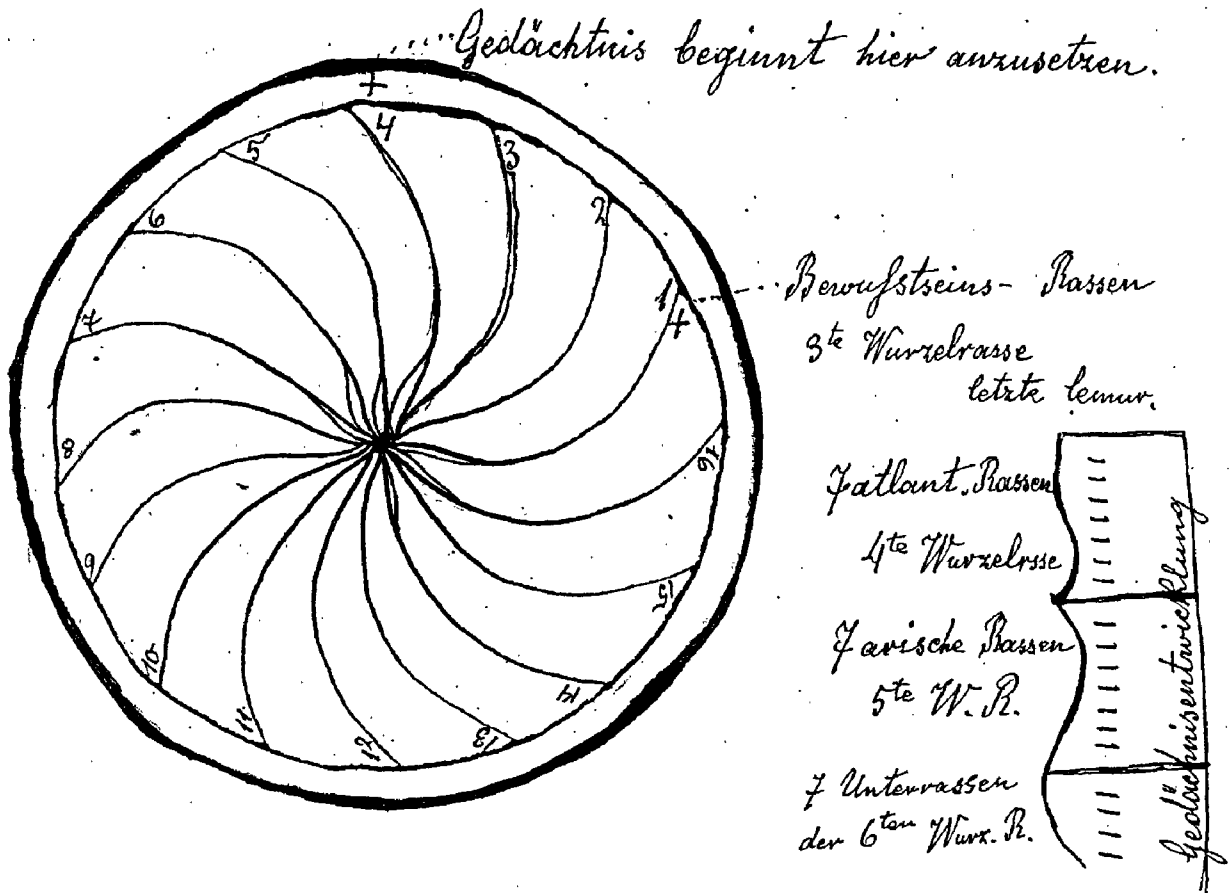 Gedächtnis beginnt hier anzusetzen.
+
4
3
5
2
6
1
+
7
8
9
10
11
12
13
14
15
16
Bewußtseins- Rassen
3te Wurzelrasse
letzte lemur.
7 atlant. Rassen
4te Wurzelrsse
7 arische Rassen
5te W. R.
7 Unterrassen
der 6ten Wurz. R.
Gedächnisentwicklung